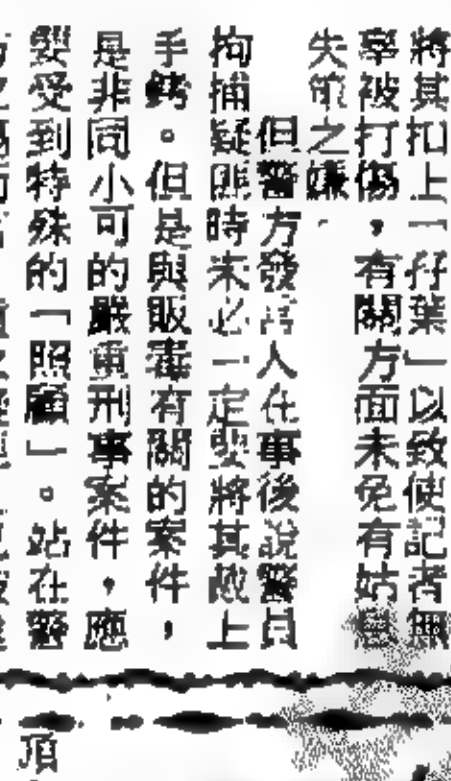 將其扣上「孖葉」以致使記者無
辜被打傷，有關方面未免有姑息
失策之嫌。
但警方發言人在事後說警員
拘捕疑匪時未必一定要將其戴上
手銬。但是與販毒有關的案件，
是非同小可的嚴重刑事案件，應
要受到特殊的「照顧」。站在警
頂